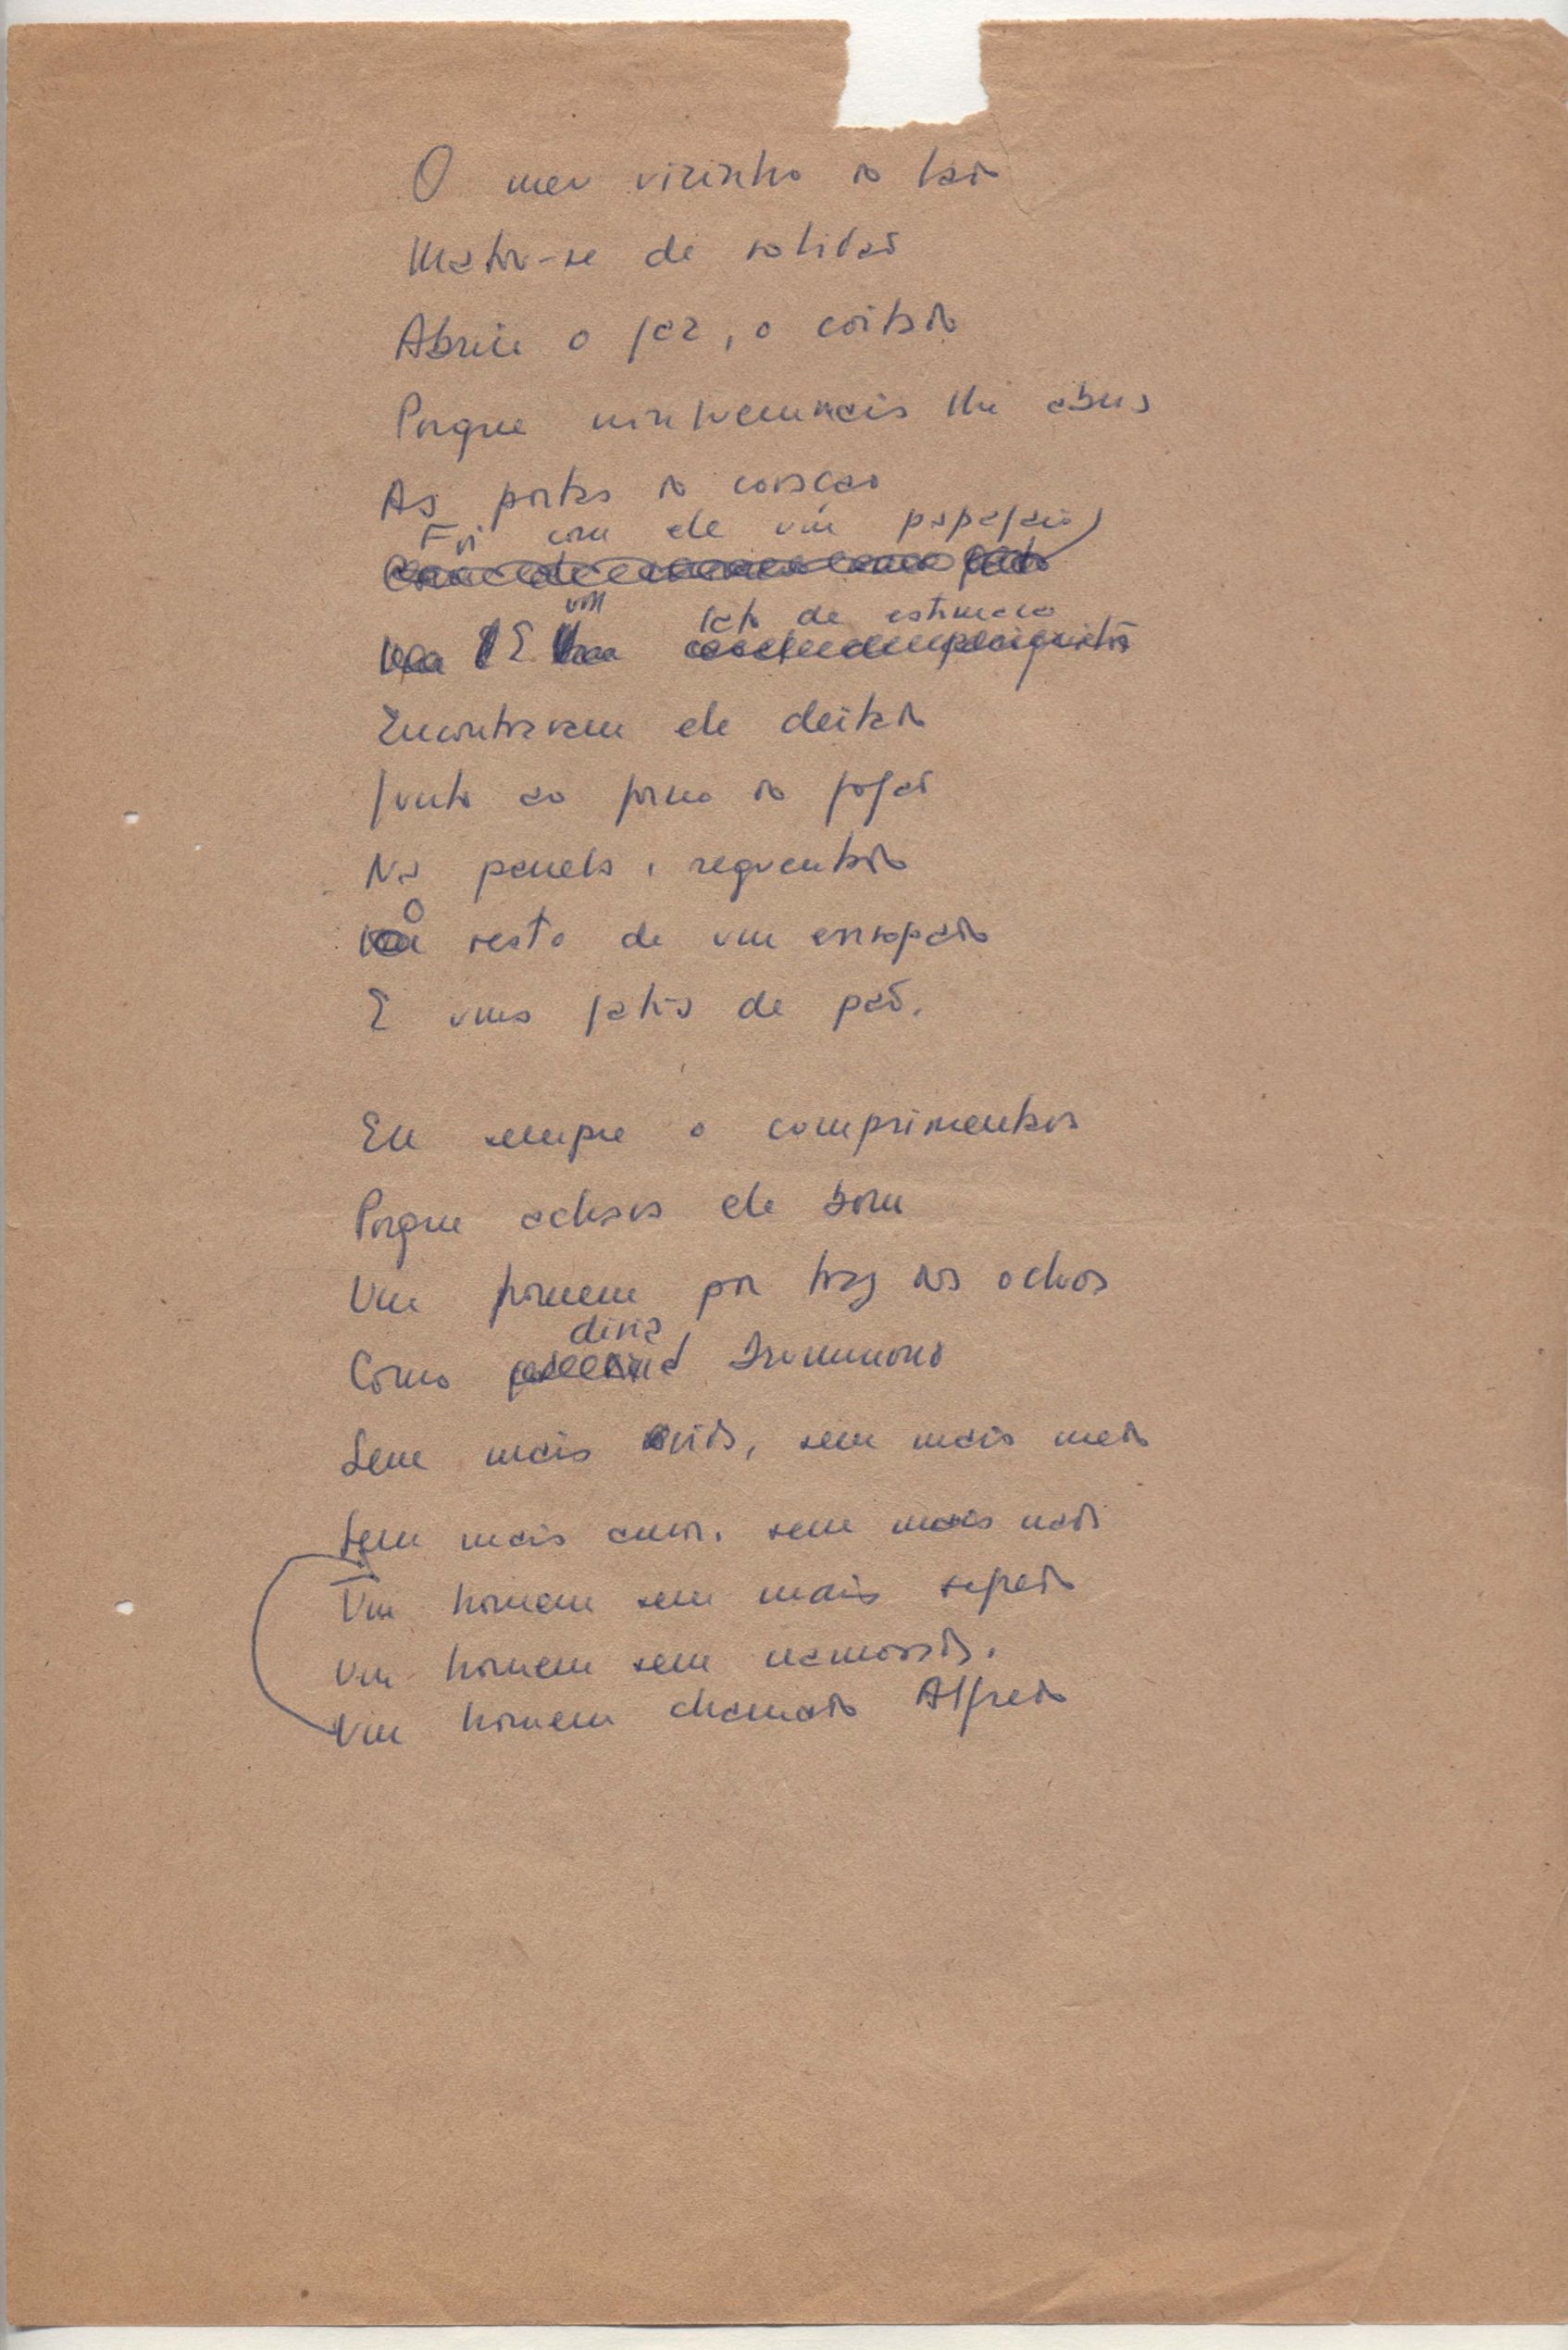 O meu vizinho do lado
Matou-se de solidão
Abriu o gaz, o coitado
Porque ninguem mais lhe abriu
As portas do coração
Foi com ele um papagaio
E um gato de estimação
Encontraram ele deitado
Junto ao forno do fogão
Na panela, requentado
O resto de um ensopado
E umas fatias de pão.
Eu sempre o comprimentava
Porque achava ele bom
Um homem por traz dos oclos
Como diria Drummond
Sem mais vida, sem mais medo
Sem mais amor, sem mais nada
Um homem sem mais segredo
Um homem sem namorada.
Um homem chamado Alfredo